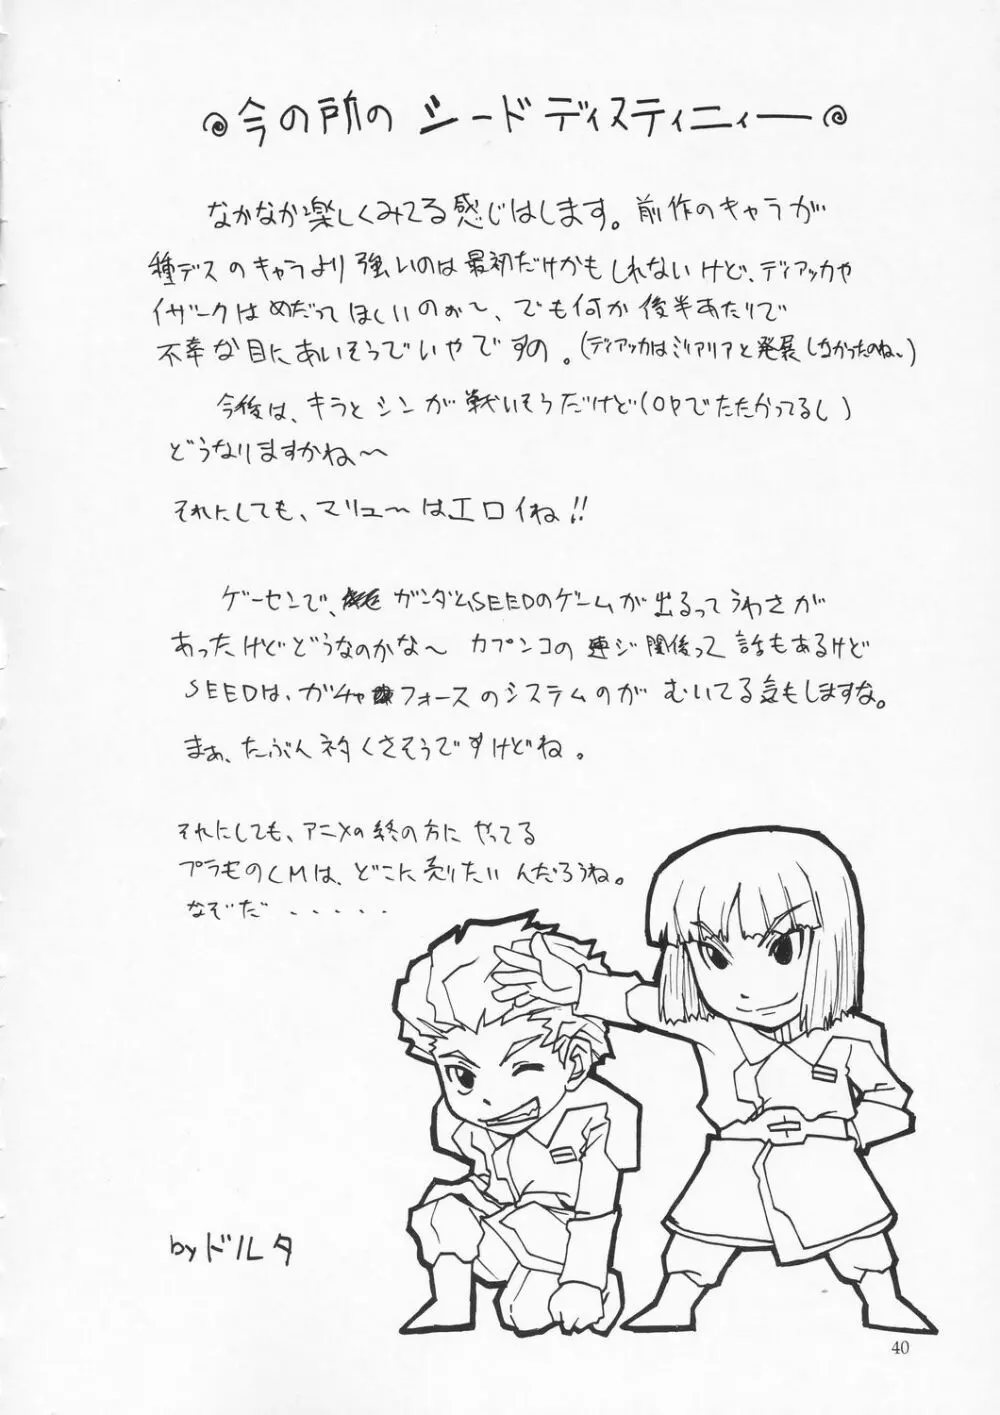 今の所の シードディスティニィー
なかなか楽しくみてる感じはします。前作のキャラが
種デスのキャラより強いのは最初だけかもしれないけど、ディアッカや
イザークはめだってほしいのぉ〜、でも何か後半あたりで
不幸な目にあいそうでいやですの。(ディアッカはミリアリアと発展しなかったのね〜)
今後は、キラとシンが戦いそうだけど(OPでたたかってるし)
どうなりますかね〜
それにしても、マリュ〜はエロイね!!
ゲーセンで、ガンダムSEEDのゲームが出るってうわさが
あったけどどうなのかな〜 カプンコの連ジ関係って話もあるけど
SEEDは、ガチャフォースのシステムのが むいてる気もしますな。
まぁ、たぶんネタくさそうですけどね。
それにしても、アニメの終の方にやってる
プラモのCMは、どこに売りたいんだろうね。
なぞだ・・・・・
by ドルタ
40